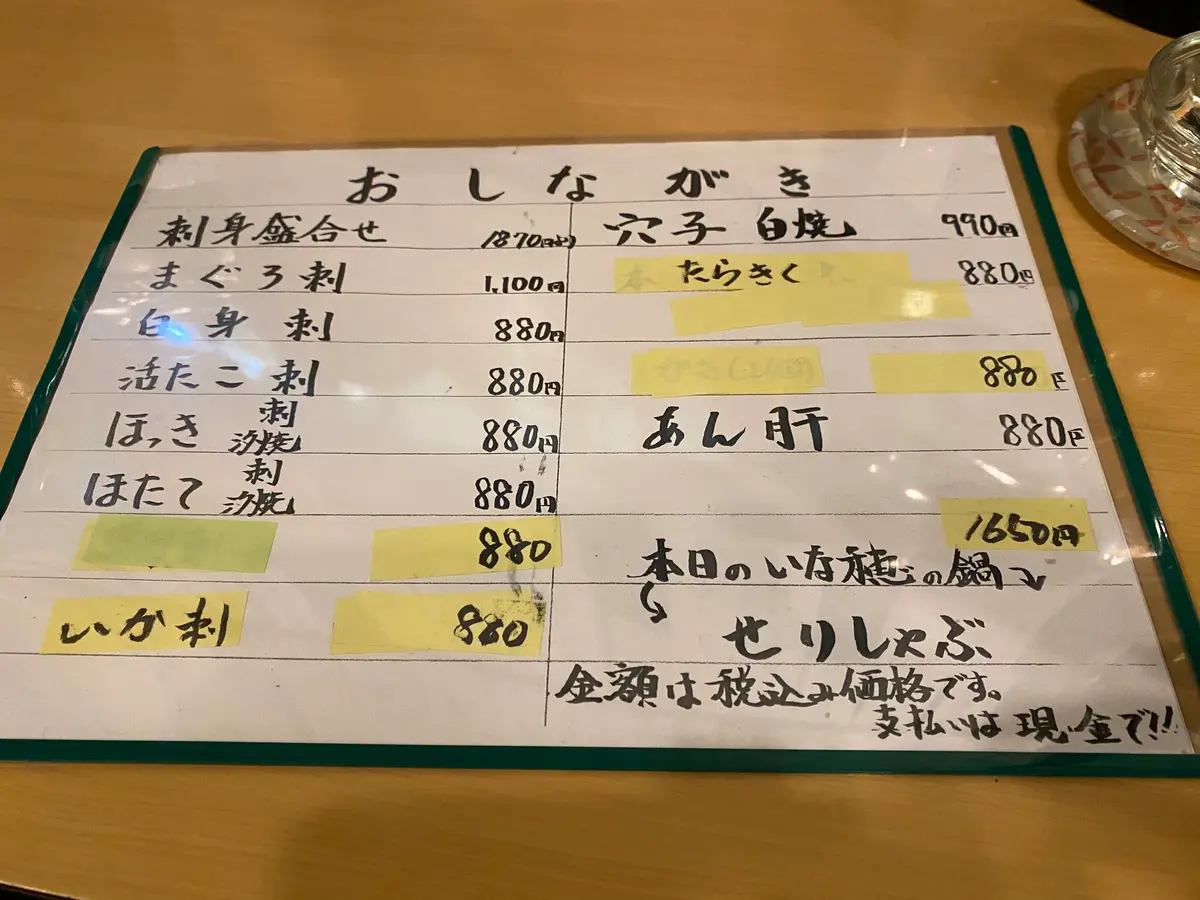 おしながき
刺身盛合せ 1870円より
まぐろ刺 1,100円
白身刺 880円
活たこ刺 880円
ほっき 刺 汐焼 880円
ほたて 刺 汐焼 880円
880
いか刺 880
穴子 白焼 990円
たらきく 880円
880円
あん肝 880円
1650円
本日のいな穂の鍋
せりしゃぶ
金額は税込み価格です。
支払いは現金で!!